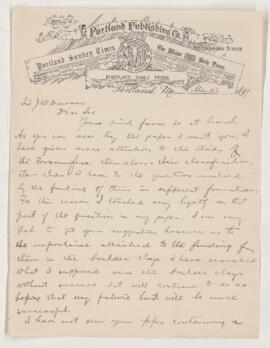 Office of
Portland Publishing Co.
Portland Sunday Times.
The Maine State Press.
Portland Daily Press.
Portland, Me. May 1897
Sir J W Dawson
Dear Sir
Your kind favor is at hand.
As you can see by the paper I sent you, I
have given more attention to the study of
the Foraminifera themselves their classification
etc. than I have to the questions involved
by the finding of them in different formations.
For this reason I touched very lightly on that
part of the question in my paper. I am very
glad to get your suggestion however as to
the importance attached to the finding for
them in the boulder clays. I have searched
what I supposed were the boulder clays
without success but will continue to do so
hoping that my future hunt will be more
successful.
I have not seen your paper containing a